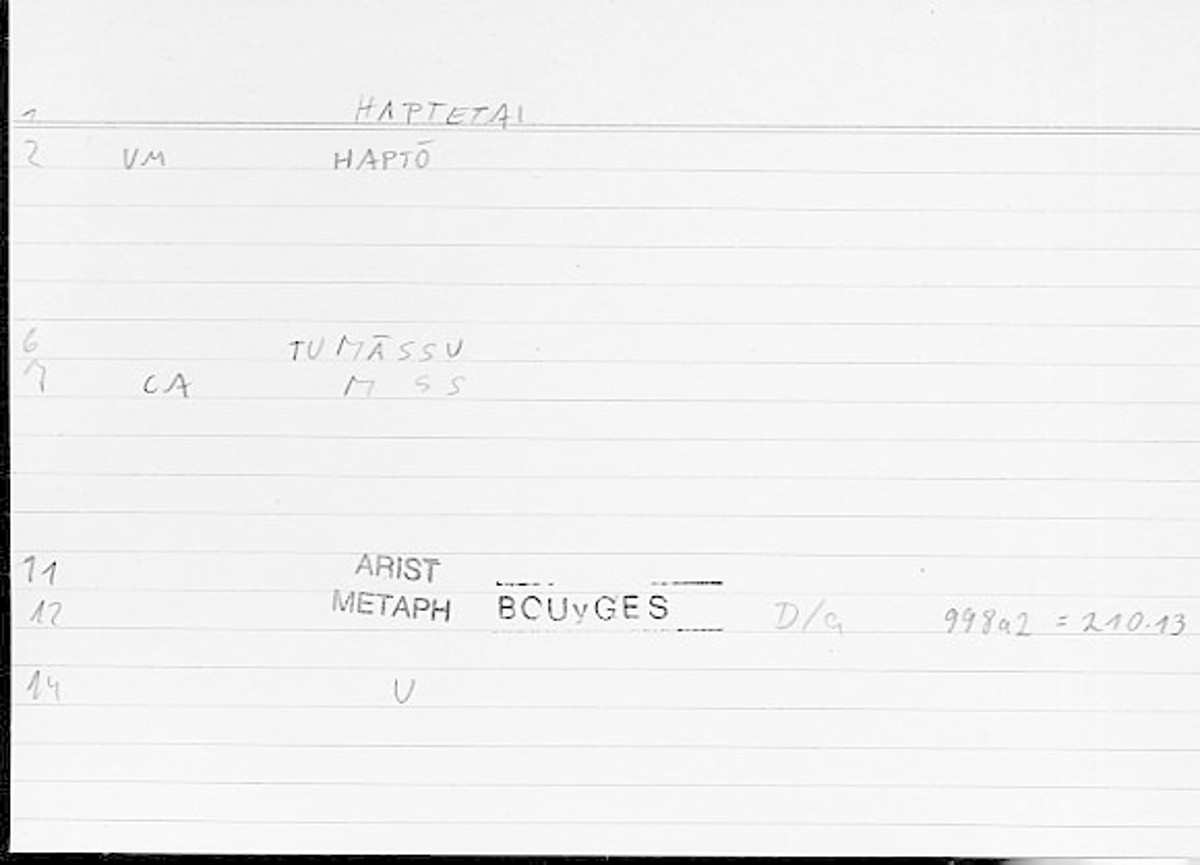 1 HAPTETAI
2 VM HAPTŌ
6 TUMĀSSU
7 CA M SS
11 ARIST
12 METAPH BOUyGES D/a 998a2 = 210.13
14 U